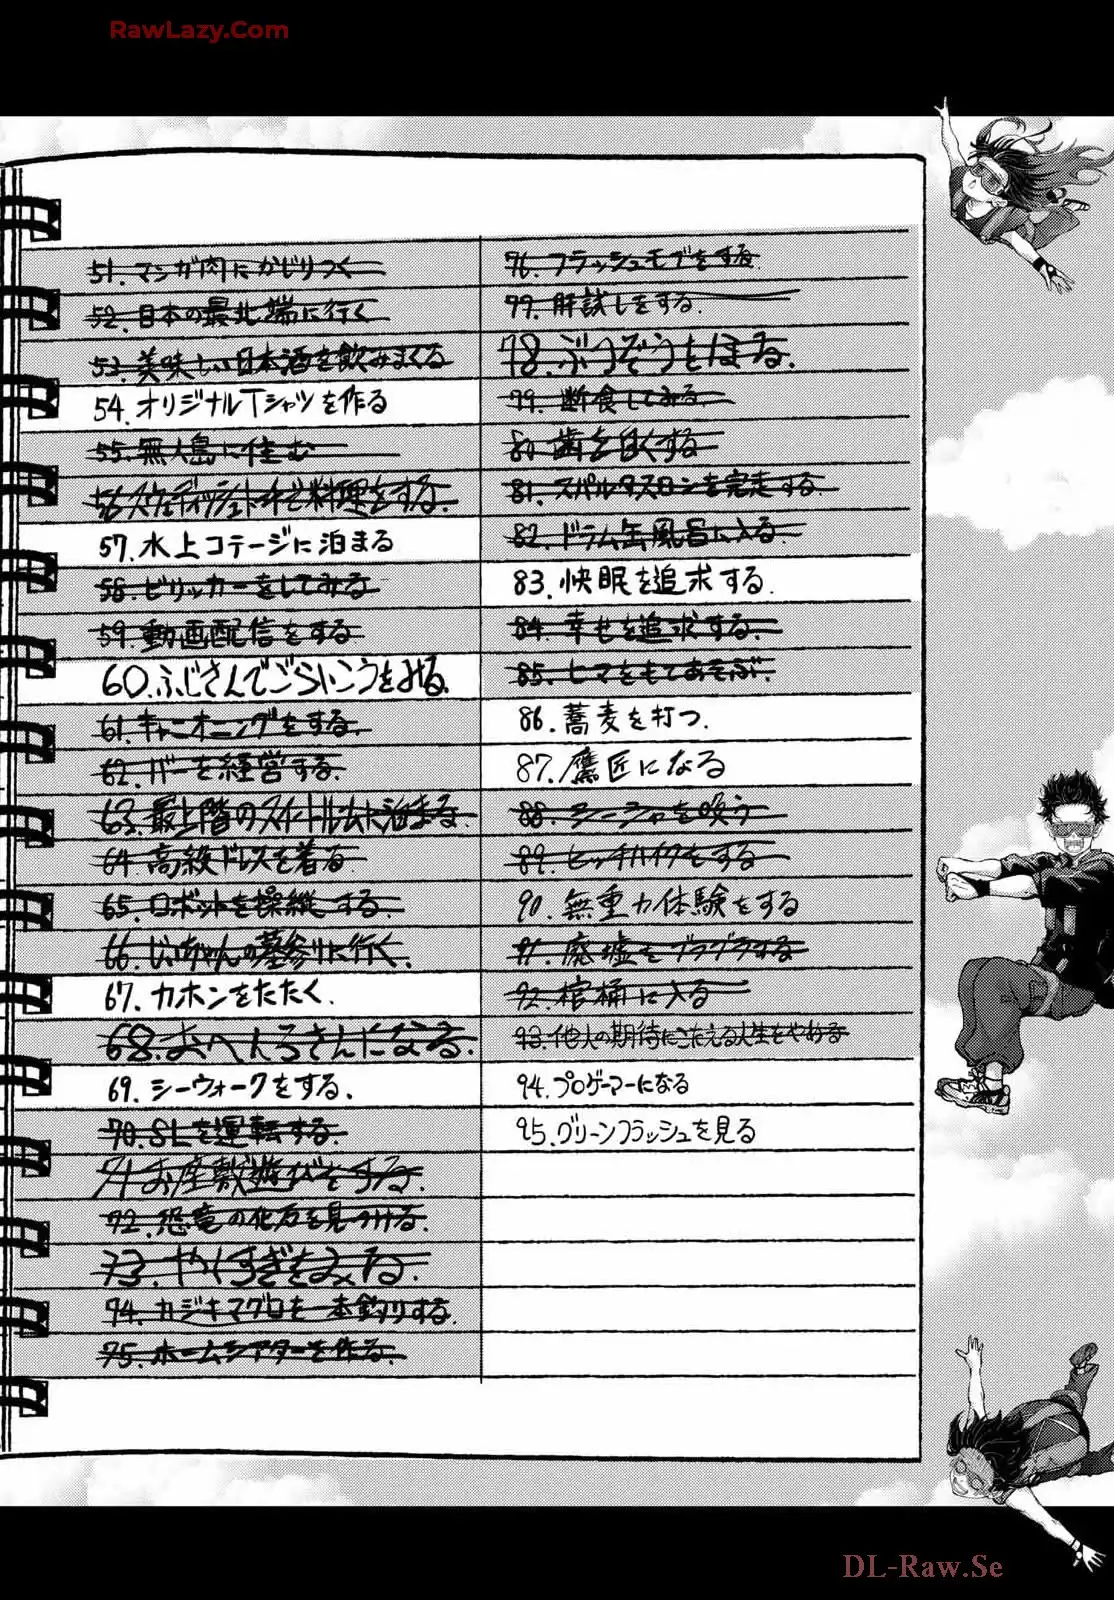 RawLazy.Com
51. マンガ肉にかじりつく
52. 日本の最北端に行く
53. 美味しい日本酒を飲みまくる
54. オリジナルTシャツを作る
55. 無人島に住む
56. スウェディッシュトーチで料理をする.
57. 水上コテージに泊まる
58. ビリッカーをしてみる
59. 動画配信をする
60. ふじさんでごらいこうをみる.
61. キャニオニングをする
62. バーを経営する.
63. 最上階のスイートルームに泊まる.
64. 高級ドレスを着る
65. ロボットを操縦する.
66. じいちゃんの墓参りに行く.
67. カホンをたたく.
68. おへんろさんになる.
69. シーウォークをする.
70. SLを運転する.
71. お座敷遊びをする.
72. 恐竜の化石を見つける.
73. やくすぎをみる.
74. カジキマグロを一本釣りする.
75. ホームシアターを作る.
76. フラッシュモブをする.
77. 肝試しをする.
78. ぶつぞうをほる.
79. 断食してみる.
80. 歯を白くする
81. スパルタスロンを完走する.
82. ドラム缶風呂に入る.
83. 快眠を追求する.
84. 幸せを追求する.
85. ヒマをもてあそぶ.
86. 蕎麦を打つ.
87. 鷹匠になる
88. シーシャを吸う
89. ヒッチハイクをする
90. 無重力体験をする
91. 廃墟をブラブラする
92. 棺桶に入る
93. 他人の期待にこたえる人生をやめる
94. プロゲーマーになる
95. グリーンフラッシュを見る
DL-Raw.Se